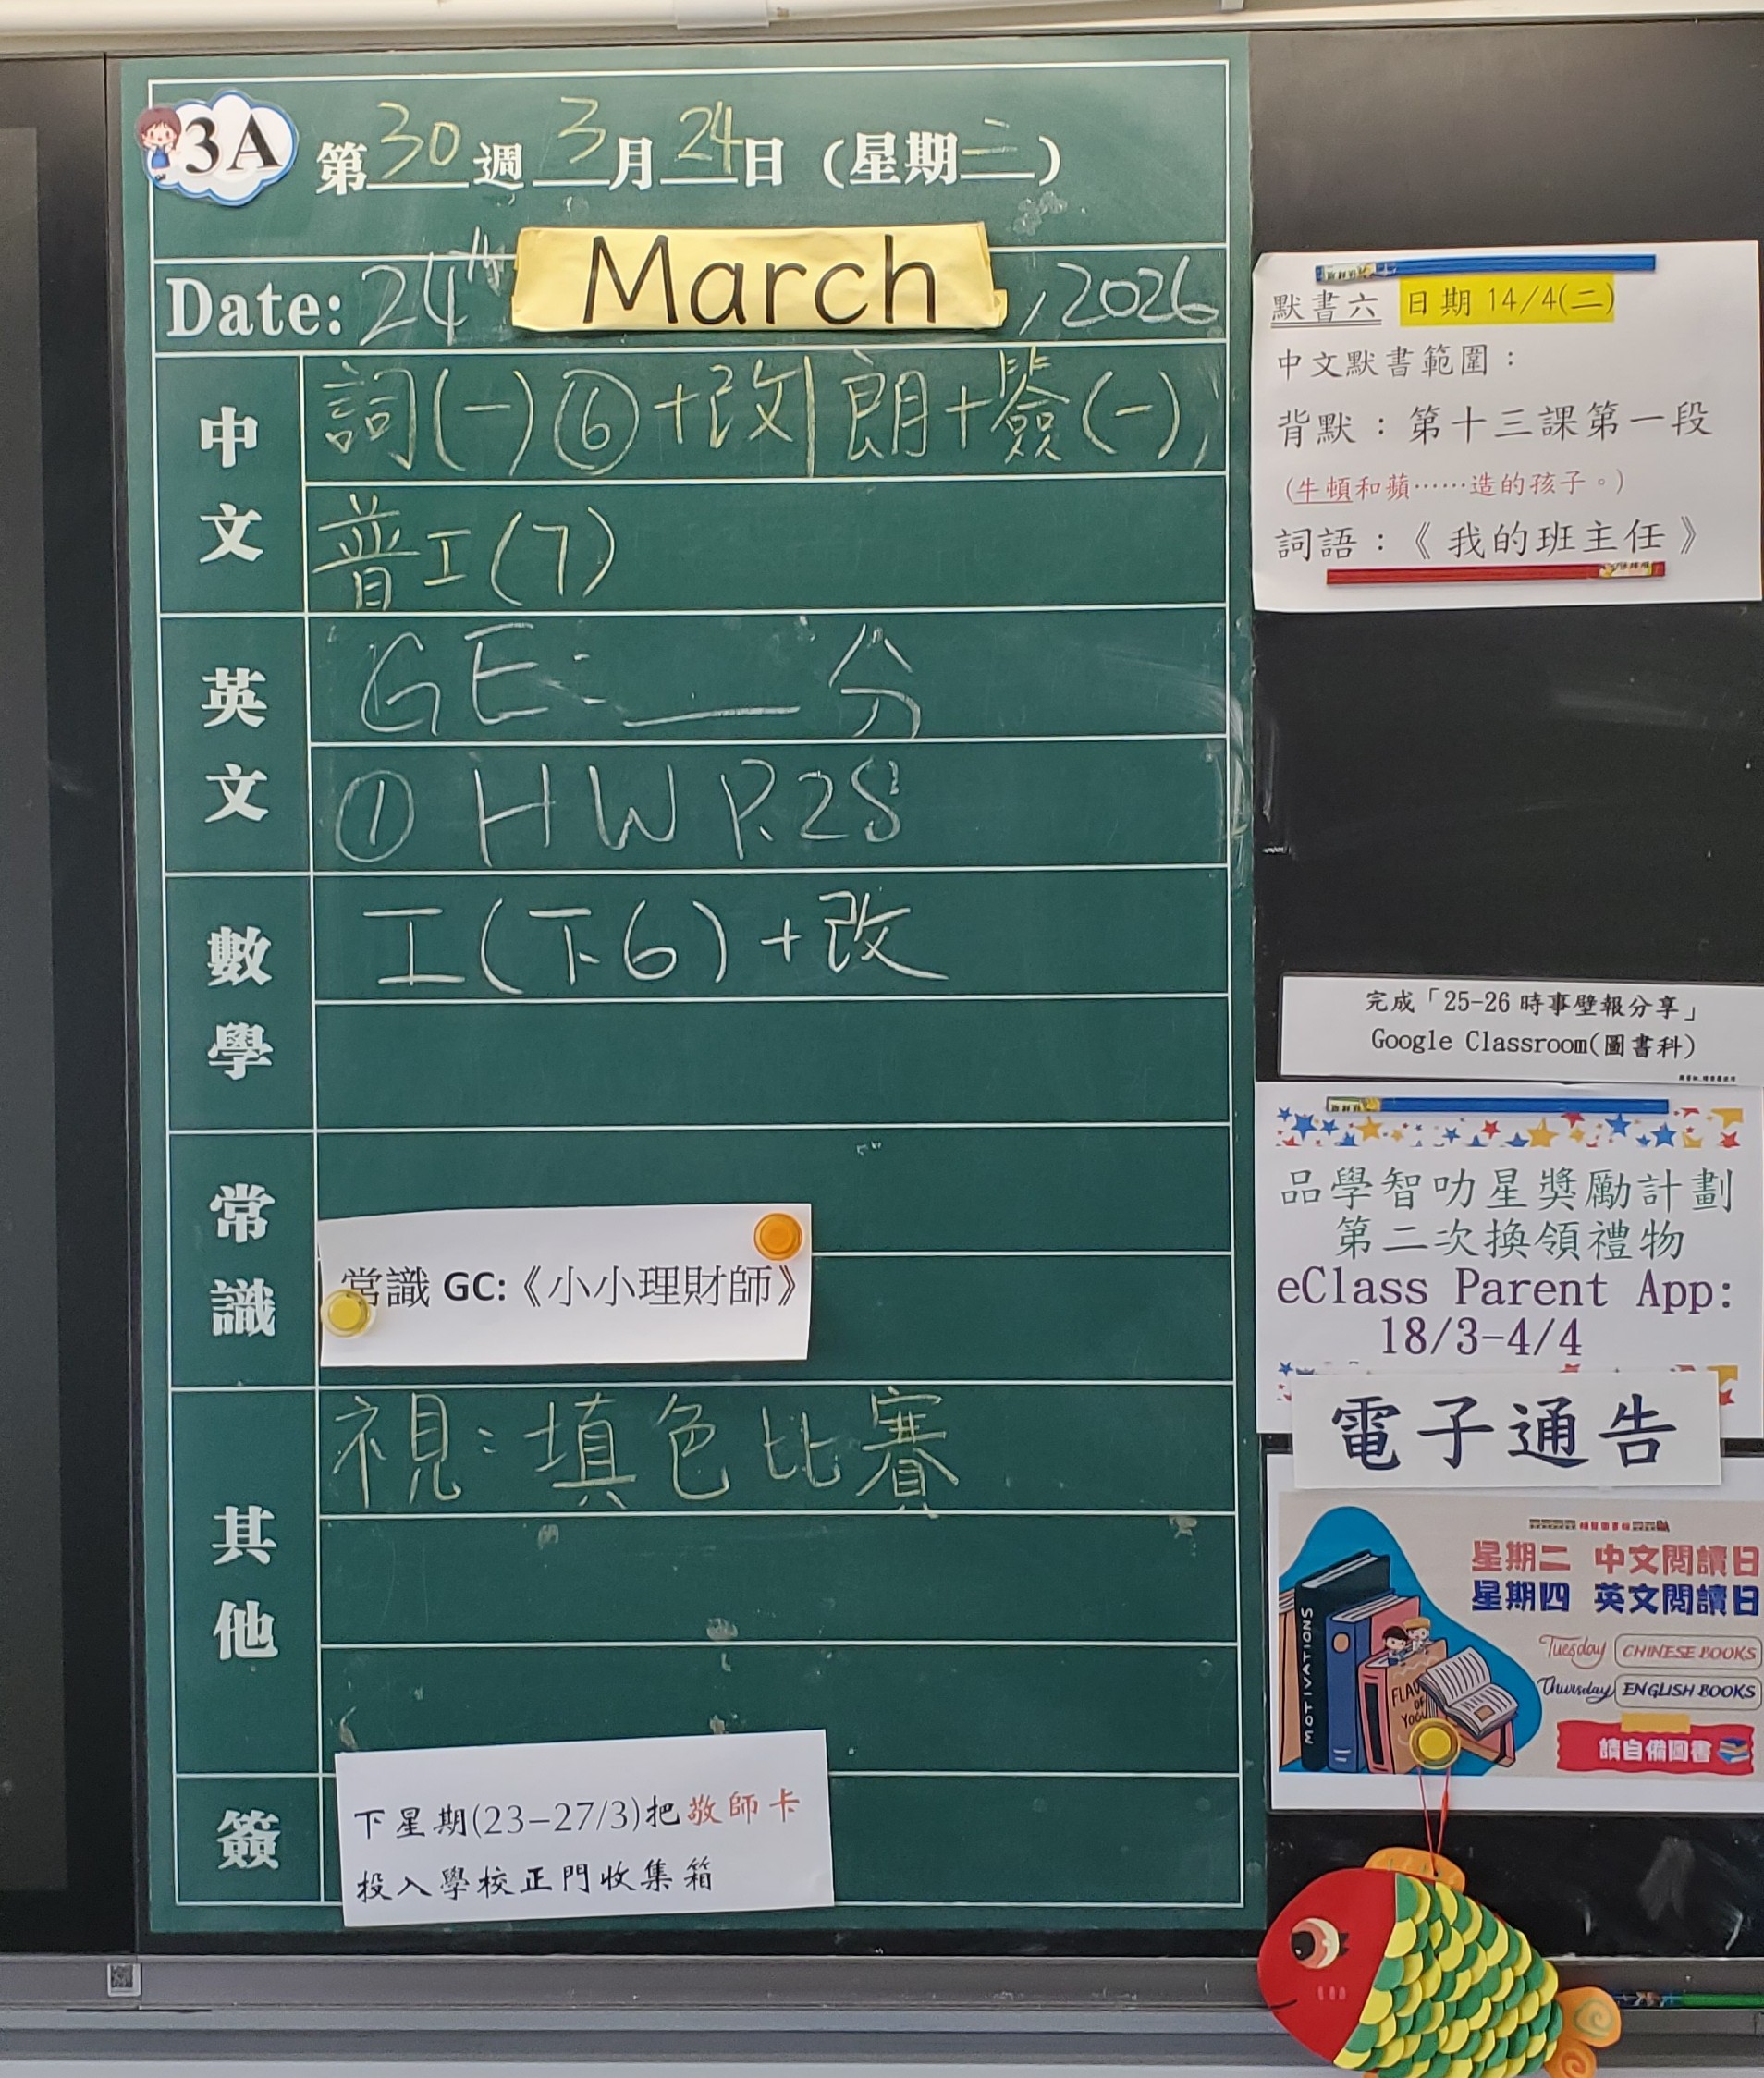 3A
第30週3月24日（星期二）
Date: 24th March, 2026
中文
詞(一)⑥+改|朗+簽(一),
普工(7)
英文
GE:__分
① HW P.28
數學
工(下6)+改
常識
常識 GC:《小小理財師》
其他
視:填色比賽
簽
下星期(23-27/3)把敬師卡
投入學校正門收集箱
默書六 日期 14/4(二)
中文默書範圍：
背默：第十三課第一段
(牛頓和蘋……造的孩子。)
詞語：《我的班主任》
完成「25-26 時事壁報分享」
Google Classroom(圖書科)
品學智叻星獎勵計劃
第二次換領禮物
eClass Parent App:
18/3-4/4
電子通告
星期二 中文閱讀日
星期四 英文閱讀日
Tuesday CHINESE BOOKS
Thursday ENGLISH BOOKS
請自備圖書
MOTIVATIONS